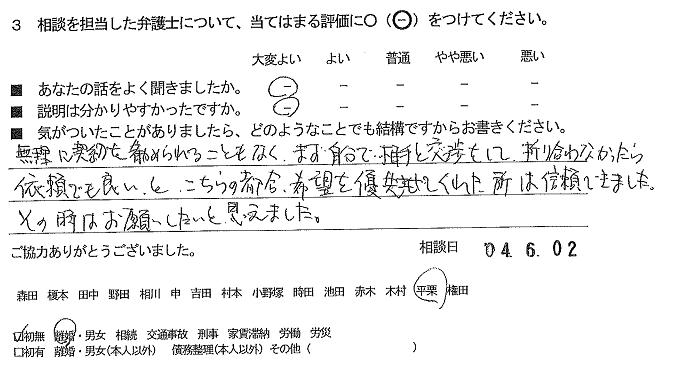 3 相談を担当した弁護士について、当てはまる評価に○（⊖）をつけてください。
大変よい よい 普通 やや悪い 悪い
■ あなたの話をよく聞きましたか。 － － － － －
■ 説明は分かりやすかったですか。 － － － － －
■ 気がついたことがありましたら、どのようなことでも結構ですからお書きください。
無理に契約を勧められることもなく、まず自分で相手と交渉をして、折り合わなかったら
依頼でも良いと、こちらの都合、希望を優先してくれた所は信頼できました。
その時はお願いしたいと思えました。
ご協力ありがとうございました。 相談日 04.6.02
森田 榎本 田中 野田 相川 申 吉田 村本 小野塚 時田 池田 赤木 木村 平栗 権田
☑初無 離婚・男女 相続 交通事故 刑事 家賃滞納 労働 労災
□初有 離婚・男女(本人以外) 債務整理(本人以外) その他（ ）